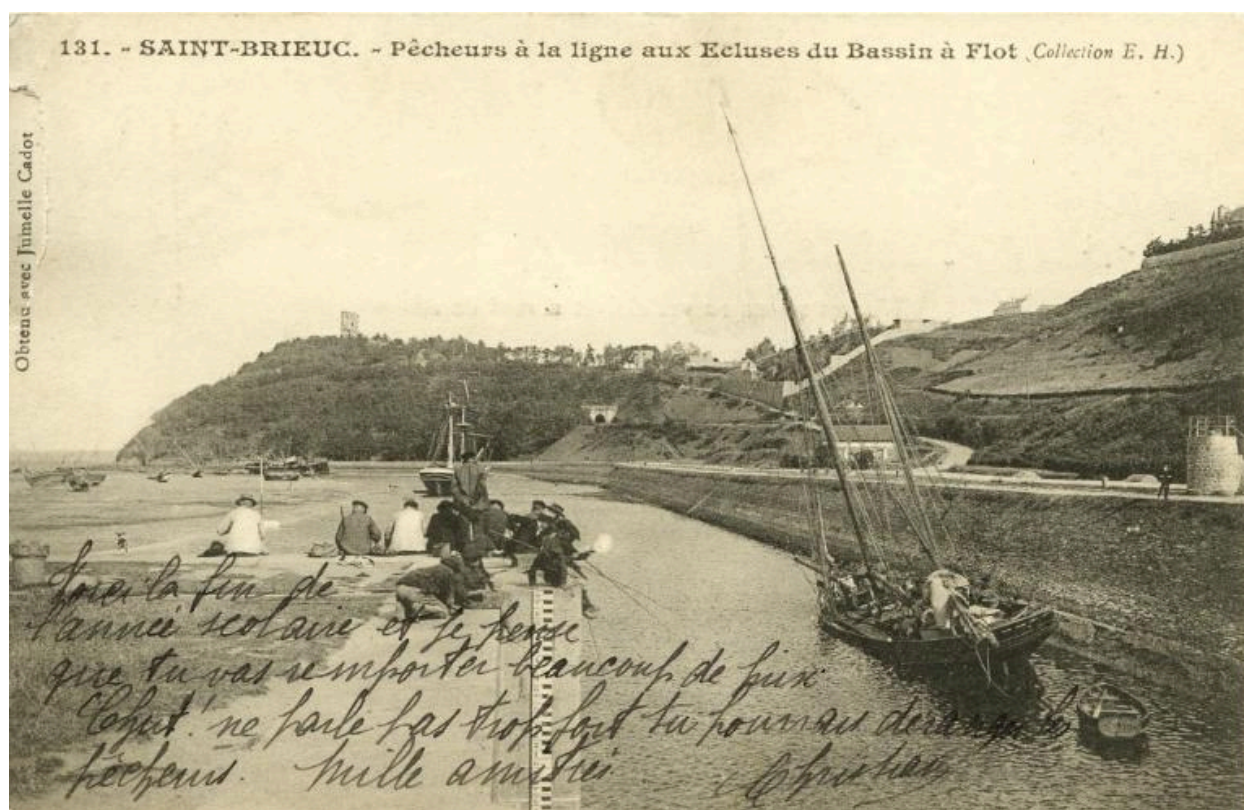 131. - SAINT-BRIEUC. - Pêcheurs à la ligne aux Ecluses du Bassin à Flot (Collection E. H.)
Obtenu avec Jumelle Cadot
Voici la fin de
l'année scolaire et je pense
que tu vas remporter beaucoup de prix
Chut! ne parle pas trop fort tu pourrais déranger les
pêcheurs. Mille amitiés Christian